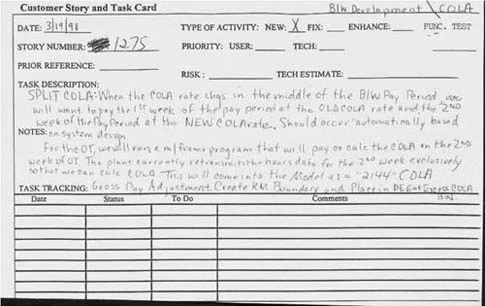 Customer Story and Task Card BIW Development COLA
DATE: 3/19/98 TYPE OF ACTIVITY: NEW: X FIX: ENHANCE: FUNC. TEST
STORY NUMBER: 1275 PRIORITY: USER: TECH:
PRIOR REFERENCE: RISK: TECH ESTIMATE:
TASK DESCRIPTION:
SPLIT COLA: When the COLA rate chgs in the middle of the BIW Pay Period we
will want to pay the 1st week of the pay period at the OLD COLA rate and the 2ND
week of the Pay Period at the NEW COLA rate. Should occur "automatically" based
NOTES: on system design
For the OT, we will run a m/frame program that will pay or calc the COLA on the 2ND
week of OT. The plant currently retransmits the hours data for the 2nd week exclusively
so that we can calc COLA. This will come into the Model as a "2144" COLA
TASK TRACKING: Gross Pay Adjustment. Create RM Boundary and Place in DEEnt Excess COLA
BIN
Date Status To Do Comments